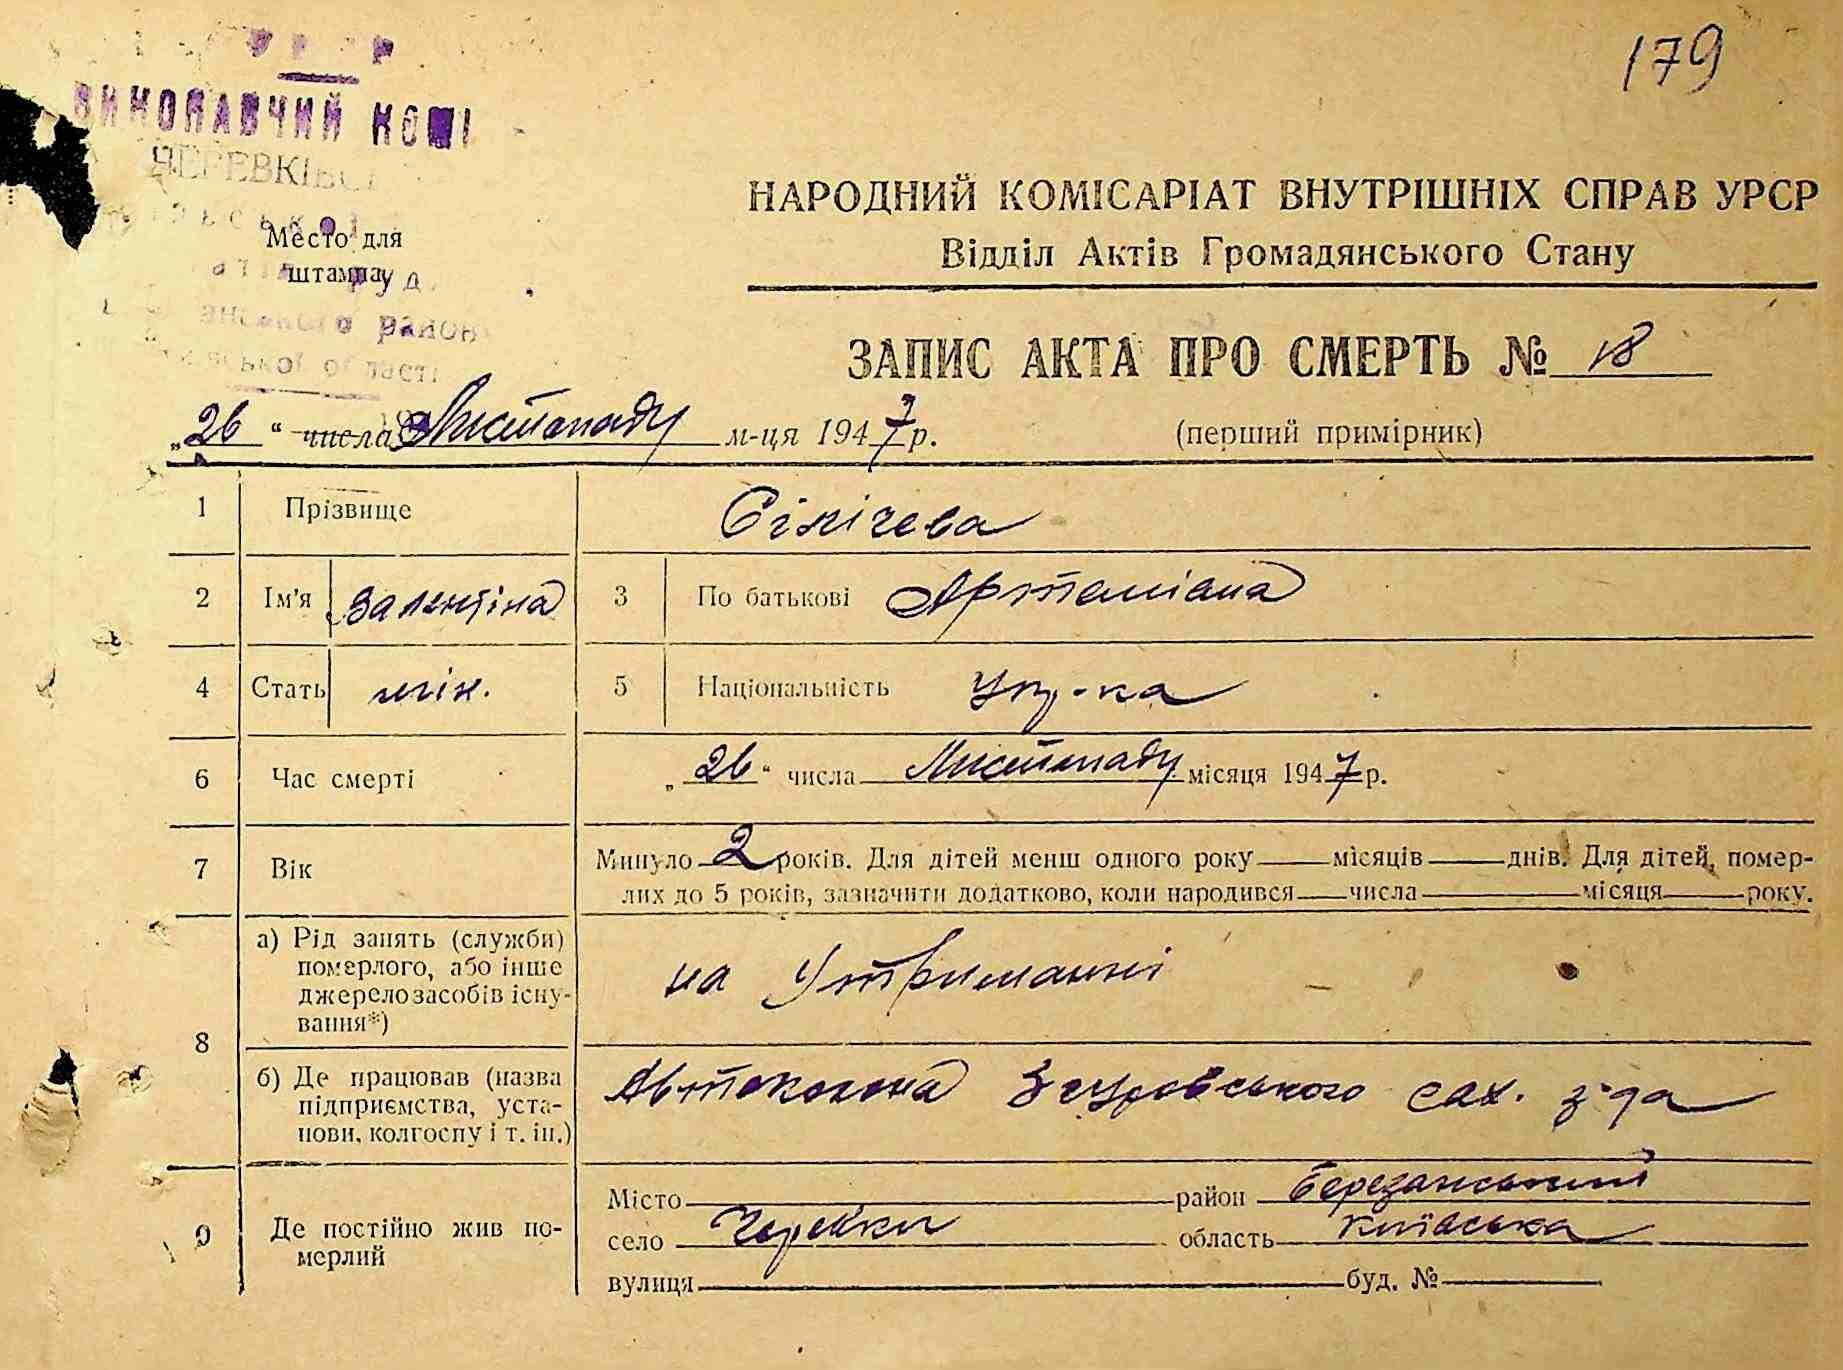 179
У Р Р
ВИКОНАВЧИЙ КОМІ
ЧЕРЕВКІВСЬ
НАРОДНИЙ КОМІСАРІАТ ВНУТРІШНІХ СПРАВ УРСР
Место для
штампау
Відділ Актів Громадянського Стану
району
області
ЗАПИС АКТА ПРО СМЕРТЬ № 18
„26“ числа Листопаду м-ця 1947 р.
(перший примірник)
1 Прізвище Сікічева
2 Ім'я Валентіна 3 По батькові Артемівна
4 Стать жін. 5 Національність Укр-ка
6 Час смерті „26“ числа Листопаду місяця 1947 р.
7 Вік Минуло 2 років. Для дітей менш одного року місяців днів. Для дітей, помер-
лих до 5 років, зазначити додатково, коли народився числа місяця року.
8 а) Рід занять (служби)
померлого, або інше
джерело засобів існу-
вання*)
на Утриманні
б) Де працював (назва
підприємства, уста-
нови, колгоспу і т. ін.)
Автоколона Згуровського сах. з-да
9 Де постійно жив по-
мерлий
Місто район Березанський
село Черевки область Київська
вулиця буд. №